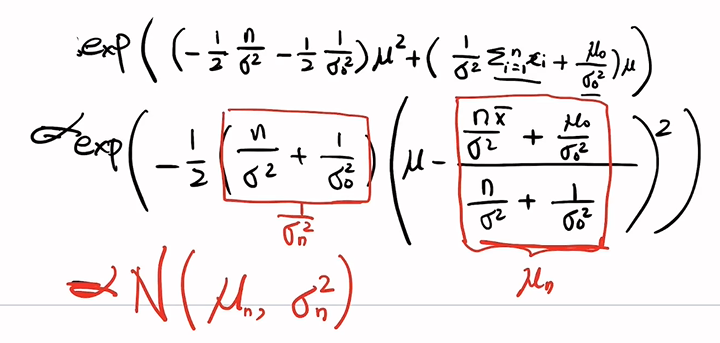 exp((-1/2 n/σ² - 1/2 1/σ₀²)μ² + (1/σ² Σⁿᵢ₌₁ xᵢ + μ₀/σ₀²)μ)
∝ exp(-1/2 (n/σ² + 1/σ₀²)(μ - (nx̄/σ² + μ₀/σ₀²)/(n/σ² + 1/σ₀²))²)
1/σₙ² μₙ
∝ N(μₙ, σₙ²)